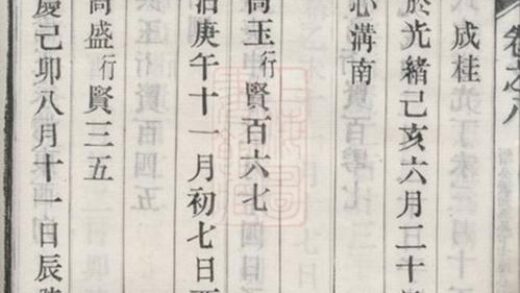 卷之八
成桂
於光緒己亥六月二十
心溝南
高玉行賢百六七
治庚午十一月初七日
高盛行賢三五
慶己卯八月十一日辰時